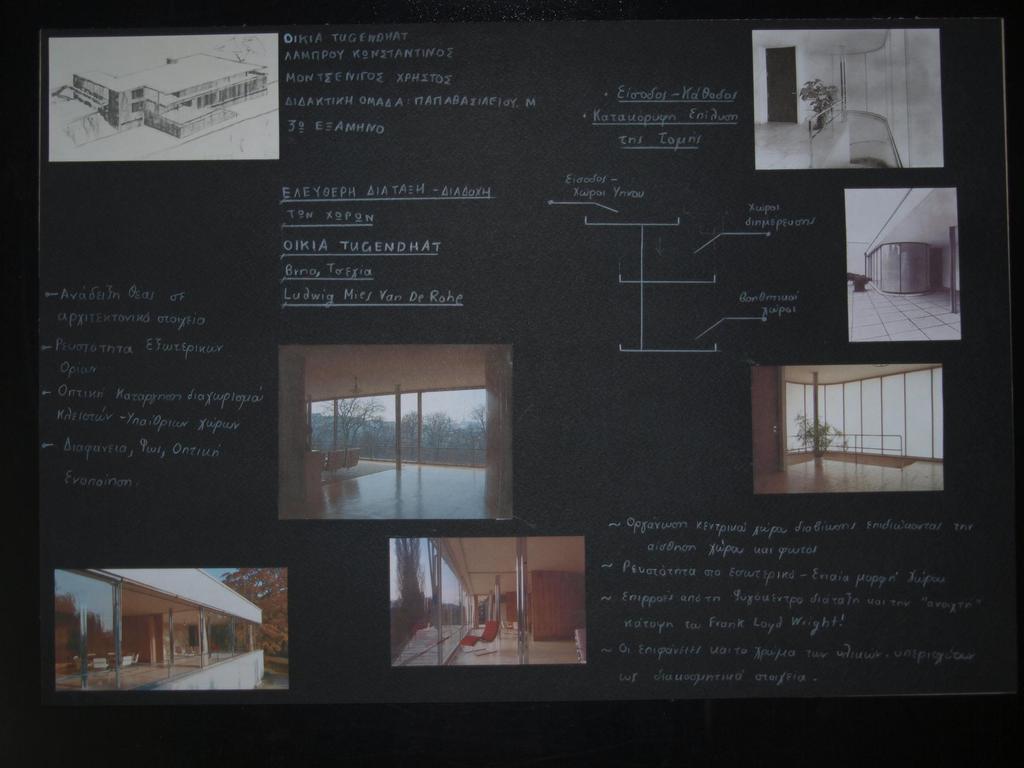 ΟΙΚΙΑ TUGENDHAT
ΛΑΜΠΡΟΥ ΚΩΝΣΤΑΝΤΙΝΟΣ
ΜΟΝΤΣΕΝΙΓΟΣ ΧΡΗΣΤΟΣ
ΔΙΔΑΚΤΙΚΗ ΟΜΑΔΑ: ΠΑΠΑΒΑΣΙΛΕΙΟΥ. Μ
3º ΕΞΑΜΗΝΟ
• Είσοδος - Κάθοδος
• Κατακόρυφη Επίλυση
της Τομής
ΕΛΕΥΘΕΡΗ ΔΙΑΤΑΞΗ - ΔΙΑΔΟΧΗ
ΤΩΝ ΧΩΡΩΝ
ΟΙΚΙΑ TUGENDHAT
Brno, Τσεχία
Ludwig Mies Van De Rohe
Είσοδος -
Χώροι Υπνου
Χώροι
διημέρευσης
Βοηθητικοί
χώροι
Ανάδειξη θέας σε
αρχιτεκτονικό στοιχείο
Ρευστότητα Εξωτερικών
Ορίων
Οπτική Κατάργηση διαχωρισμού
Κλειστών - Υπαίθριων χώρων
Διαφάνεια, Φως, Οπτική
Ενοποίηση.
~ Οργάνωση κεντρικού χώρου διαβίωσης επιδιώκοντας την
αίσθηση χώρου και φωτός
~ Ρευστότητα στο εσωτερικό - Ενιαία μορφή χώρου
~ Επιρροές από τη Φυγόκεντρο διάταξη και την "ανοιχτή"
κάτοψη του Frank Loyd Wright!
~ Οι επιφάνειες και το χρώμα των υλικών. υπερισχύουν
ως διακοσμητικά στοιχεία.